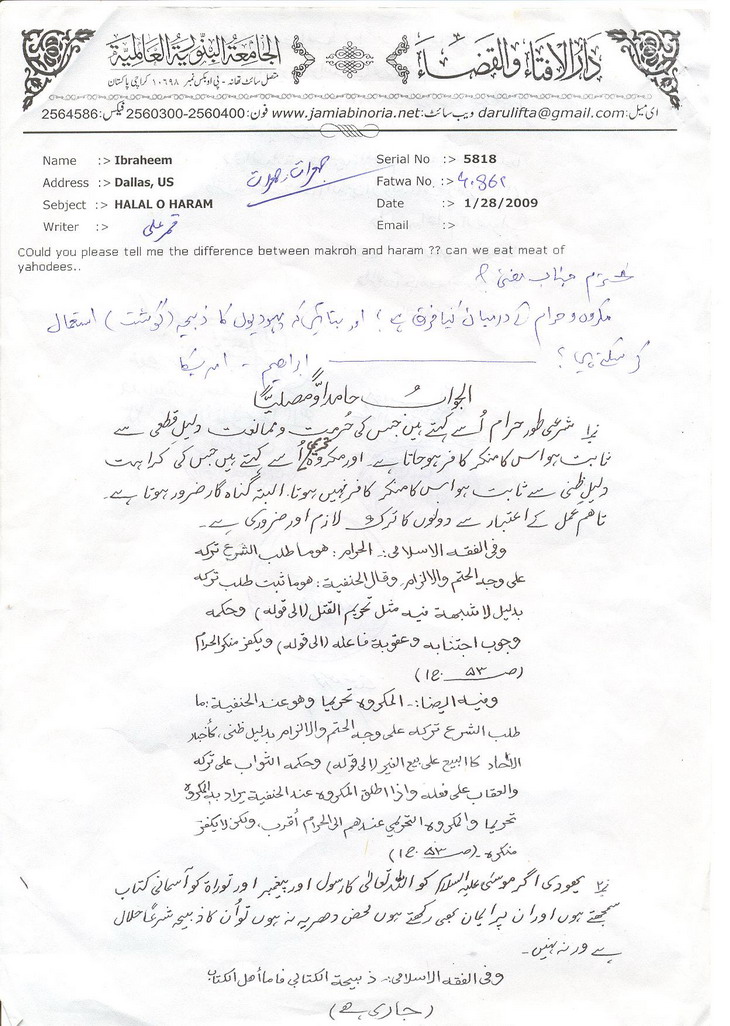 دارالافتاء والقضاء
الجامعة البنورية العالمية
متصل سائٹ تھانہ - پی او بکس نمبر ۱۰۶۹۸ کراچی پاکستان
ای میل: darulifta@gmail.com ویب سائٹ: www.jamiabinoria.net فون: 2560300-2560400 فیکس: 2564586
Name :> Ibraheem Serial No :> 5818
Address :> Dallas, US Fatwa No. :>
Sebject :> HALAL O HARAM Date :> 1/28/2009
Writer :> Email :>
COuld you please tell me the difference between makroh and haram ?? can we eat meat of
yahodees..
محترم جناب مفتی
مکروہ و حرام کے درمیان کیا فرق ہے؟ اور بتائیں کہ یہودیوں کا ذبیحہ (گوشت) استعمال
کر سکتے ہیں؟ ابراھیم - امریکا
الجواب حامداً ومصلیاً
شرعی طور حرام اُسے کہتے ہیں جس کی حُرمت وممانعت دلیلِ قطعی سے
ثابت ہو اس کا منکر کافر ہوجاتا ہے۔ اور مکروہ تحریمی اُسے کہتے ہیں جس کی کراہت
دلیلِ ظنی سے ثابت ہو اس کا منکر کافر نہیں ہوتا، البتہ گناہ گار ضرور ہوتا ہے۔
تاھم عمل کے اعتبار سے دونوں کا ترک لازم اور ضروری ہے۔
وفی الفقہ الاسلامی:۔ الحرام: ھو ما طلب الشرع ترکہ
علی وجہ الحتم والالزام، وقال الحنفیة: ھو ما ثبت طلب ترکہ
بدلیل لا شبھة فیہ مثل تحریم القتل (الی قولہ) وحکمہ
وجوب اجتنابہ وعقوبة فاعلہ (الی قولہ) ویکفر منکر الحرام
(ص ۵۳ ج۱)
وفیہ ایضا:۔ المکروہ تحریما وھو عند الحنفیة: ما
طلب الشرع ترکہ علی وجہ الحتم والالزام بدلیل ظنی، کأخبار
الآحاد کالبیع علی بیع الغیر (الی قولہ) وحکمہ الثواب علی ترکہ
والعقاب علی فعلہ واذا اطلق المکروہ عند الحنفیة یراد بہ المکروہ
تحریما والمکروہ التحریمی عندھم الی الحرام أقرب، ولکن لا یکفر
منکرہ۔ (ص ۵۳ ج۱)
یہودی اگر موسیٰ علیہ السلام کو اللہ تعالیٰ کا رسول اور پیغمبر اور توراة کو آسمانی کتاب
سمجھتے ہوں اور ان پر ایمان بھی رکھتے ہوں محض دھریہ نہ ہوں تو اُن کا ذبیحہ شرعاً حلال
ہے ورنہ نہیں۔
وفی الفقہ الاسلامی:۔ ذبیحة الکتابی فاما أھل الکتاب
(جاری ہے)